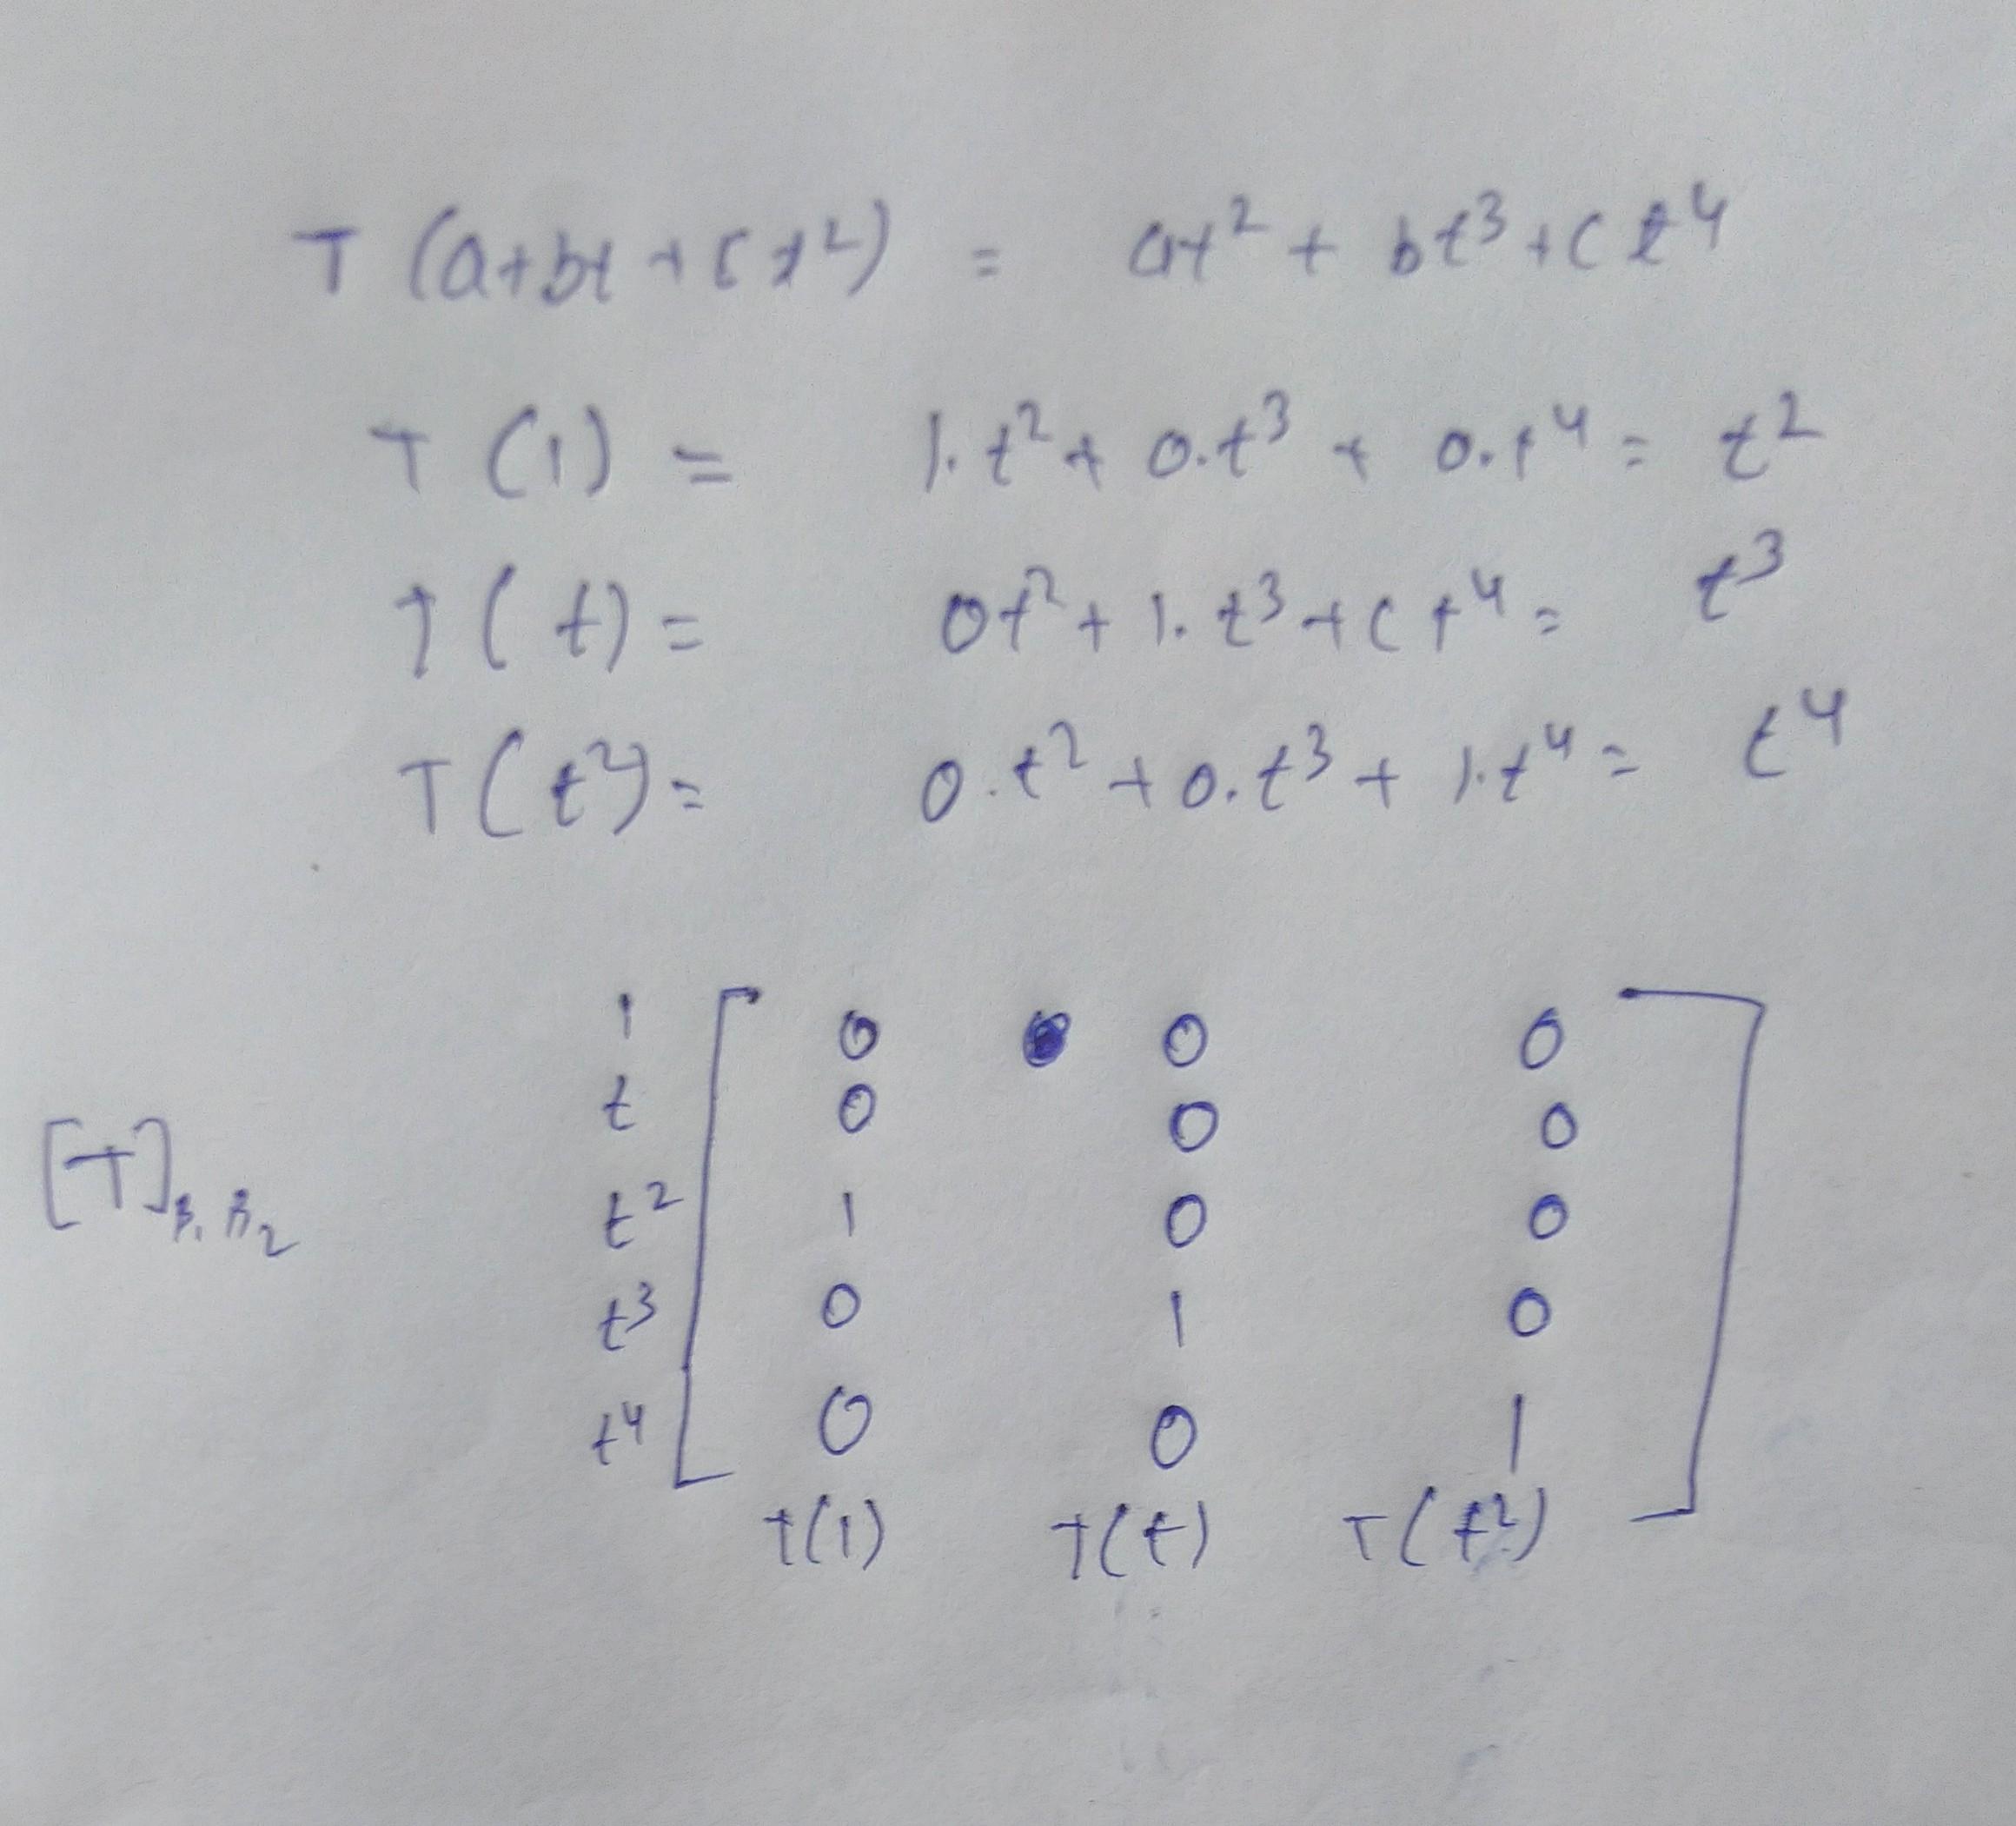 T (a+bt+ct²) = at² + bt³ + ct⁴
T (1) = 1.t² + 0.t³ + 0.t⁴ = t²
T (t) = 0t² + 1.t³ + ct⁴ = t³
T (t²) = 0.t² + 0.t³ + 1.t⁴ = t⁴
1 [ 0 0 0 ]
t 0 0 0
[T]B₁ B₂ t² 1 0 0
t³ 0 1 0
t⁴ 0 0 1
T(1) T(t) T(t²)